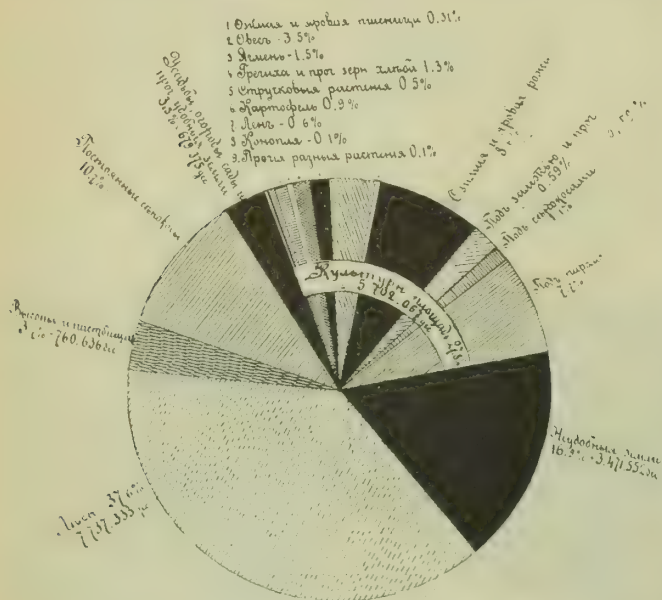 1 Озимая и яровая пшеница 0.31%
2 Овесъ - 3.5%
3 Ячмень - 1.5%
4 Гречиха и проч зерн хлѣба 1.3%
5 Стручковыя растенія 0.5%
6 Картофель 0.9%
7 Ленъ - 0.6%
8 Конопля - 0.1%
9. Прочія разныя растенія 0.1%
Усадьбы, огороды, сады и
проч. удобныя земли
3.3% - 679.375
Постоянные сѣнокосы
10.
Выгоны и пастбища
3. % - 760.636
Лѣса 37.6%
7.737.333
Озимая и яровая рожь
8
Подъ залежью и проч
0.59%
Подъ
1%
Подъ паромъ
Культурн. площадь
5.702.05
Неудобныя земли
16.9% - 3.471.55